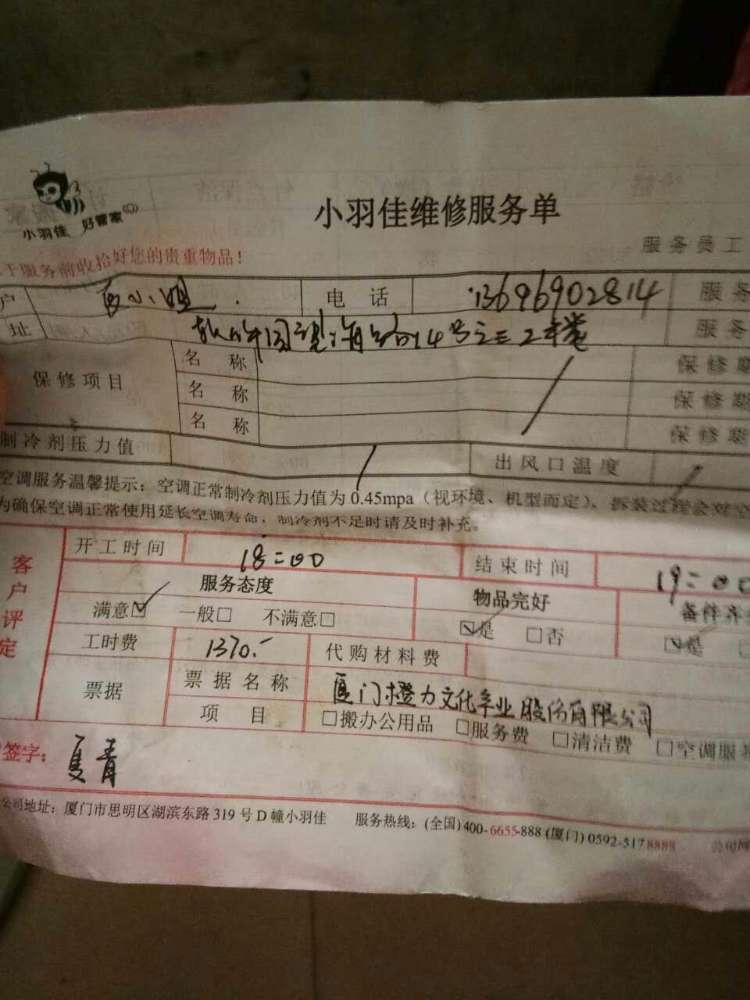 小羽佳 好管家
小羽佳维修服务单
服务员工
于服务前收拾好您的贵重物品!
户 夏小姐 电话 13696902814 服务
址 软件园观海路14号之三2楼 服务
保修项目 名称 保修期
名称 保修期
名称 保修期
制冷剂压力值 出风口温度
空调服务温馨提示:空调正常制冷剂压力值为0.45mpa(视环境、机型而定)、拆装过程会对空
为确保空调正常使用延长空调寿命,制冷剂不足时请及时补充。
客户评定
开工时间 18:00 结束时间 19:00
服务态度 物品完好 备件齐
满意☑ 一般□ 不满意□ ☑是 □否 ☑是
工时费 1370.- 代购材料费
票据 票据名称 厦门橙力文化产业股份有限公司
项目 □搬办公用品 □服务费 □清洁费 □空调服
签字: 夏青
公司地址:厦门市思明区湖滨东路319号D幢小羽佳 服务热线:(全国)400-6655-888(厦门)0592-5178888 公司网